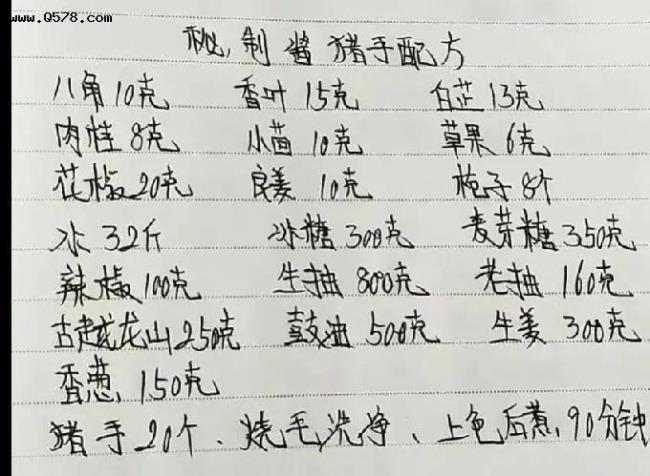 www.0578.com
秘制酱猪手配方
八角10克 香叶15克 白芷13克
肉桂8克 小茴10克 草果6克
花椒20克 良姜10克 栀子8个
水32斤 冰糖300克 麦芽糖350克
辣椒100克 生抽800克 老抽160克
古越龙山250克 鼓油500克 生姜300克
香葱150克
猪手20个、烧毛洗净、上色后煮,90分钟